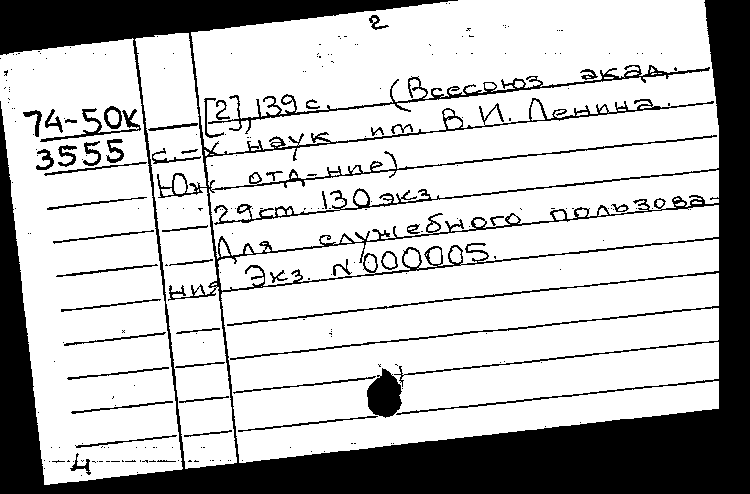 2
74-50к [2], 139 с. (Всесоюз акад.
3555 с.-х. наук им. В.И. Ленина.
Юж. отд-ние).
29 ст. 130 экз.
Для служебного пользова-
ния. Экз. N 000005.
4